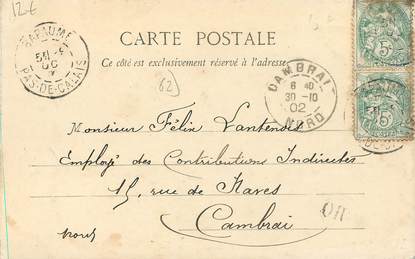 12€
CARTE POSTALE
Ce côté est exclusivement réservé à l'adresse.
BAPAUME
PAS-DE-CALAIS
62
CAMBRAI
6 40
30-10
02
NORD
5c
5c
Monsieur Félix Lantenois
Employé des Contributions Indirectes
15, rue de Naves
Cambrai
Nord